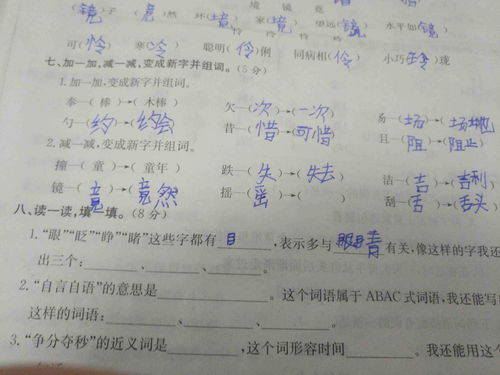 镜 境 竟
(镜)子 (竟)然 环(境) 家(境) 望远(镜) 水平如(镜)
怜 伶 怜 伶 玲
可(怜) 寒(冷) 聪明(伶)俐 同病相(伶) 小巧(玲)珑
七、加一加,减一减,变成新字并组词。(5分)
1.加一加,变成新字并组词。
奉—(棒)→(木棒) 欠—(次)→(一次) 昜—(场)→(场地)
勺—(约)→(约会) 昔—(惜)→(可惜) 且—(阻)→(阻止)
2.减一减,变成新字并组词。
撞—(童)→(童年) 跌—(失)→(失去) 洁—(吉)→(吉利)
镜—(竟)→(竟然) 摇—(䍃)→( ) 刮—(舌)→(舌头)
八、读一读,填一填。(8分)
1.“眼”“眨”“睁”“睹”这些字都有目,表示多与眼睛有关,像这样的字我还
出三个:______、______、______。
2.“自言自语”的意思是______。这个词语属于ABAC式词语,我还能写
这样的词语:______、______、______。
3.“争分夺秒”的近义词是______,这个词形容时间______。我还能用这个